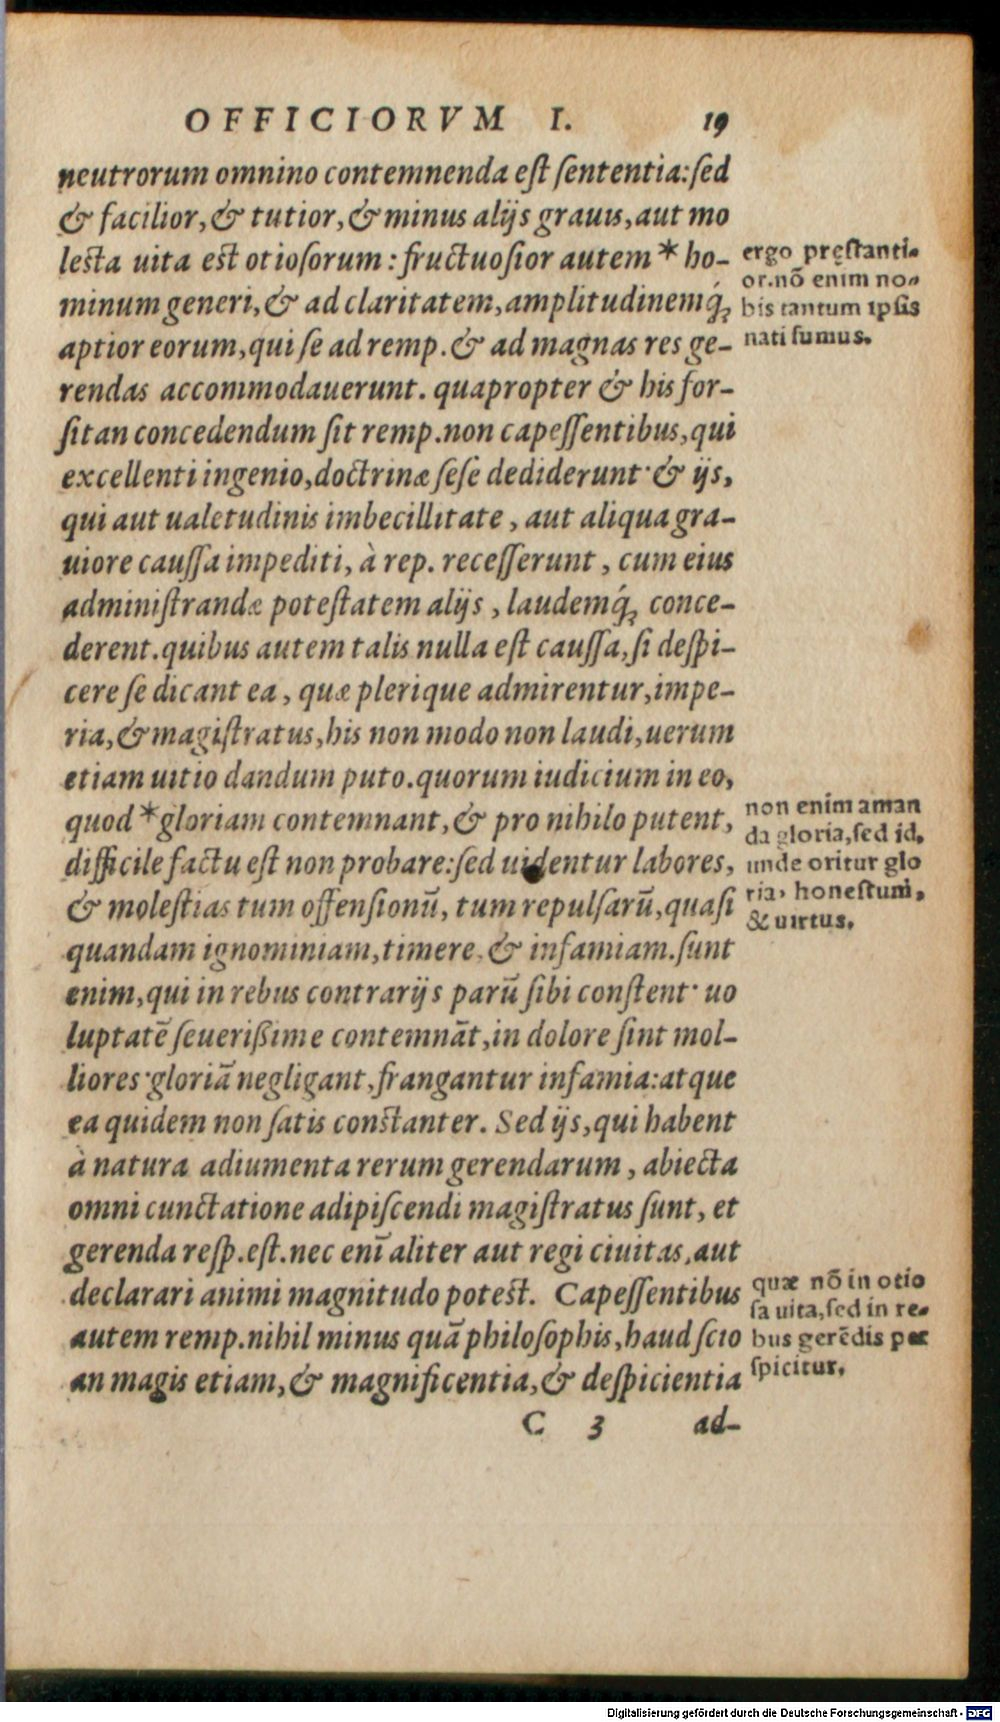 OFFICIORVM I. 19
neutrorum omnino contemnenda est sententia:sed
& facilior,& tutior,& minus alijs grauis,aut mo
lesta uita est otiosorum: fructuosior autem * ho-
minum generi,& ad claritatem,amplitudinemq́;
aptior eorum,qui se ad remp.& ad magnas res ge-
rendas accommodauerunt. quapropter & his for-
sitan concedendum sit remp.non capessentibus,qui
excellenti ingenio,doctrinæ sese dediderunt· & ijs,
qui aut ualetudinis imbecillitate, aut aliqua gra-
uiore caussa impediti, à rep. recesserunt, cum eius
administrandæ potestatem alijs, laudemq́; conce-
derent.quibus autem talis nulla est caussa,si despi-
cere se dicant ea, quæ plerique admirentur,impe-
ria,& magistratus,his non modo non laudi,uerum
etiam uitio dandum puto.quorum iudicium in eo,
quod *gloriam contemnant,& pro nihilo putent,
difficile factu est non probare:sed uidentur labores,
& molestias tum offensionũ, tum repulsarũ,quasi
quandam ignominiam,timere,& infamiam.sunt
enim,qui in rebus contrarijs parũ sibi constent· uo
luptatẽ seuerißime contemnãt,in dolore sint mol-
liores·gloriã negligant,frangantur infamia:atque
ea quidem non satis constanter. Sed ijs,qui habent
à natura adiumenta rerum gerendarum, abiecta
omni cunctatione adipiscendi magistratus sunt, et
gerenda resp.est.nec enĩ aliter aut regi ciuitas,aut
declarari animi magnitudo potest. Capessentibus
autem remp.nihil minus quã philosophis,haud scio
an magis etiam,& magnificentia,& despicientia
C 3 ad-
ergo pręstanti-
or.nõ enim no-
bis tantum ipsis
nati sumus.
non enim aman
da gloria,sed id,
unde oritur glo
ria, honestum,
& uirtus.
quæ nõ in otio
sa uita,sed in re-
bus gerẽdis per
spicitur.
Digitalisierung gefördert durch die Deutsche Forschungsgemeinschaft - DFG